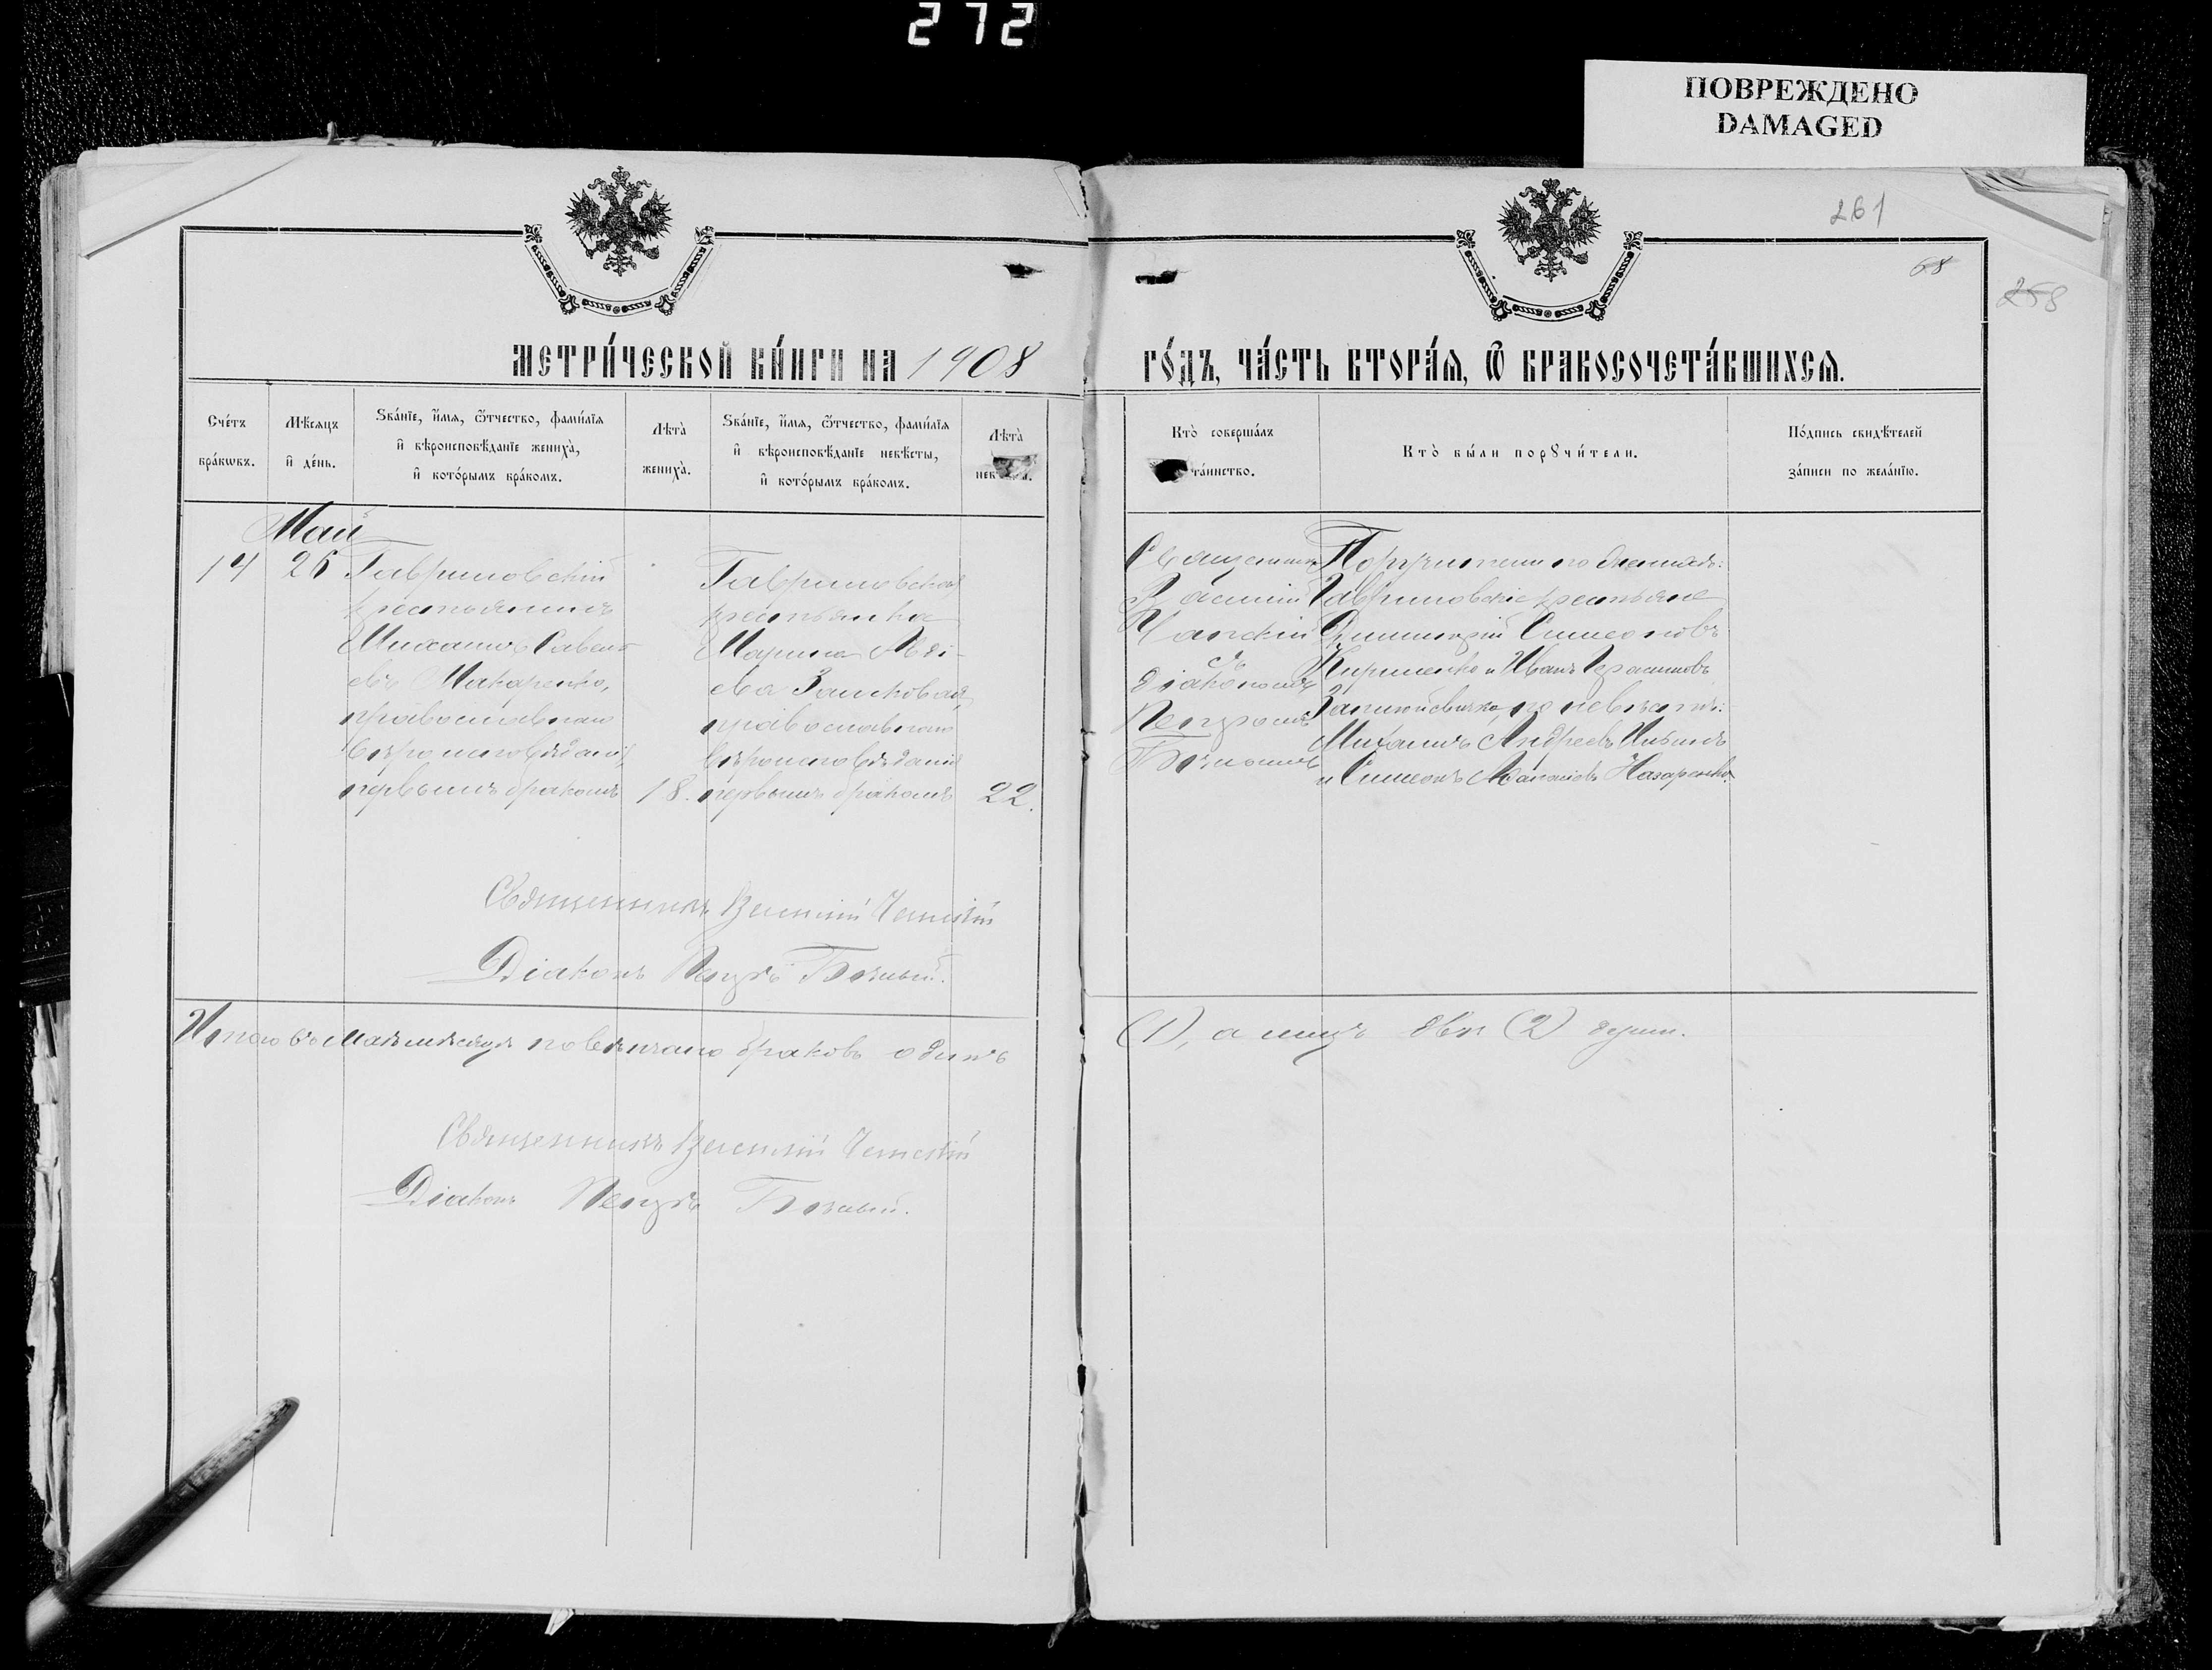 272
ПОВРЕЖДЕНО
DAMAGED
261
68
258
МЕТРИ́ЧЕСКОЙ КНИ́ГИ НА 1908
ГО́ДЪ, ЧА́СТЬ ВТОРА́Я, Ѿ БРАКОСОЧЕТА́ВШИХСЯ.
Сче́тъ
бра́кωвъ.
Мѣ́сяцъ
и҆ де́нь.
Ѕва́нїе, и҆́мя, ѻ҆́тчество, фами́лїя
и҆ вѣроисповѣ́данїе жениха̀,
и҆ кото́рымъ бра́комъ.
Лѣта̀
жениха̀.
Ѕва́нїе, и҆́мя, ѻ҆́тчество, фами́лїя
и҆ вѣроисповѣ́данїе невѣ́сты,
и҆ кото́рымъ бра́комъ.
Лѣта̀
Кто̀ соверша́лъ
та́инство.
Кто̀ бы́ли порꙋчи́тели.
По́дпись свидѣ́телей
за́писи по жела́нїю.
Май
14
26
Гавриловскій
крестьянинъ
Михаилъ Савель-
евъ Макаренко,
православнаго
вѣроисповѣданія
первымъ бракомъ
18.
Гавриловская
крестьянка
Марина
ева
православнаго
вѣроисповѣданія
первымъ бракомъ
22.
Священникъ
Василій
съ
діакономъ
Петромъ
Поручители по женихѣ:
Гавриловскіе крестьяне
Димитрій Симеоновъ
Кириченко и Иванъ Герасимовъ
по невѣстѣ:
Михаилъ Андреевъ
и Симеонъ Назаренко.
Священникъ Василій
Діаконъ Петръ
Итого въ Маѣ мѣсяцѣ повѣнчано браковъ одинъ
(1), а лицъ двѣ (2) души.
Священникъ Василій
Діаконъ Петръ